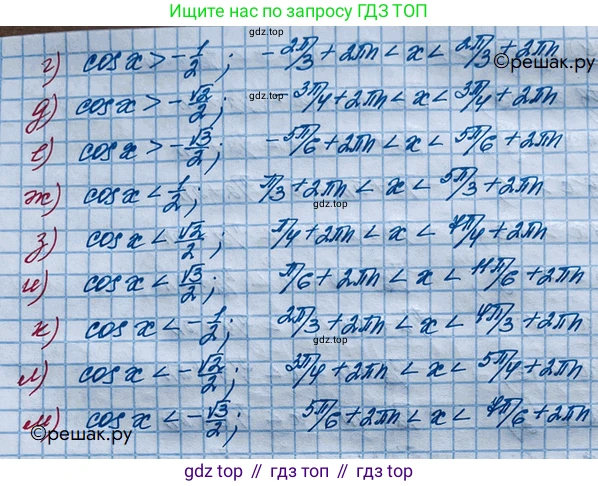 Ищите нас по запросу ГДЗ ТОП
г) cos x > -1/2; -2π/3 + 2πn < x < 2π/3 + 2πn
gdz top
©решак.ру
д) cos x > -√2/2; -3π/4 + 2πn < x < 3π/4 + 2πn
gdz.top
е) cos x > -√3/2; -5π/6 + 2πn < x < 5π/6 + 2πn
ж) cos x < 1/2; π/3 + 2πn < x < 5π/3 + 2πn
gdz.top
з) cos x < √2/2; π/4 + 2πn < x < 7π/4 + 2πn
и) cos x < √3/2; π/6 + 2πn < x < 11π/6 + 2πn
к) cos x < -1/2; 2π/3 + 2πn < x < 4π/3 + 2πn
л) cos x < -√2/2; 3π/4 + 2πn < x < 5π/4 + 2πn
м) cos x < -√3/2; 5π/6 + 2πn < x < 7π/6 + 2πn
©решак.ру
gdz top // гдз топ // gdz.top